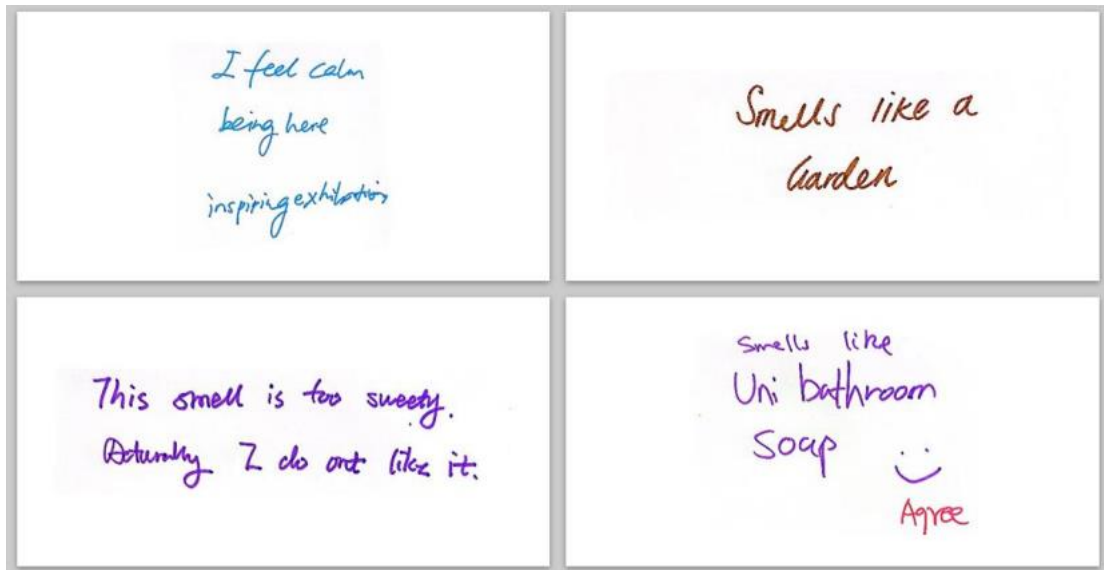 I feel calm
being here
inspiring exhibition
Smells like a
Garden
This smell is too sweety.
Acturally I do ont like it.
Smells like
Uni bathroom
Soap
Agree